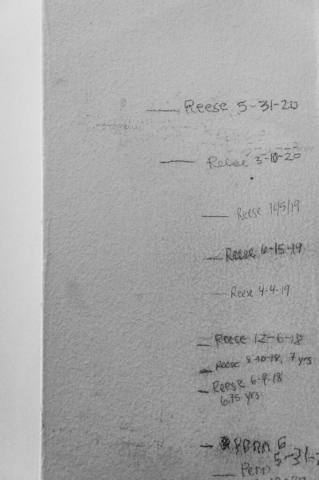 Reese 5-31-20
Reese 3-10-20
Reese 11/5/19
Reese 6-15-19
Reese 4-4-19
Reese 12-6-18
Reese 8-10-18, 7 yrs
Reese 6-9-18
6.75 yrs
6
5-31-2